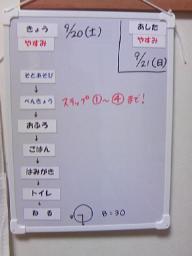 きょう 9/20(土)
やすみ
あした
やすみ
9/21(日)
そとあそび
↓
べんきょう スタップ①〜④まで!
↓
おふろ
↓
ごはん
↓
はみがき
↓
トイレ
↓
ねる 8:30